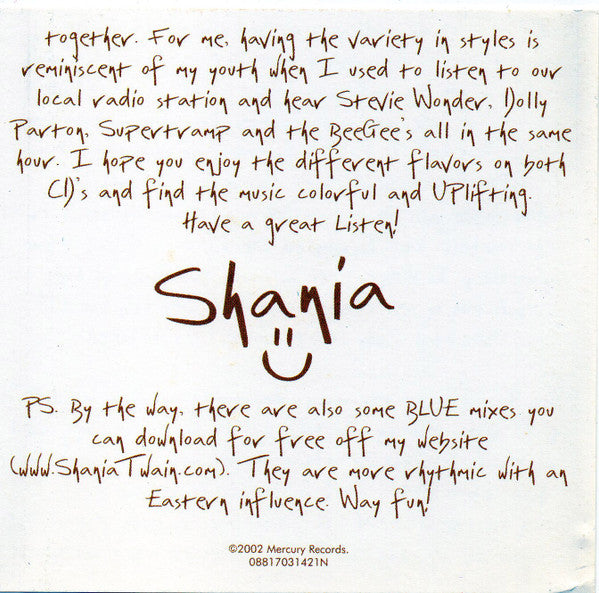 together. For me, having the variety in styles is
reminiscent of my youth when I used to listen to our
local radio station and hear Stevie Wonder, Dolly
Parton, Supertramp and the BeeGee's all in the same
hour. I hope you enjoy the different flavors on both
CD's and find the music colorful and UPlifting.
Have a great Listen!
Shania
PS. By the way, there are also some BLUE mixes you
can download for free off my website
(www.ShaniaTwain.com). They are more rhythmic with an
Eastern influence. Way fun!
©2002 Mercury Records.
08817031421N